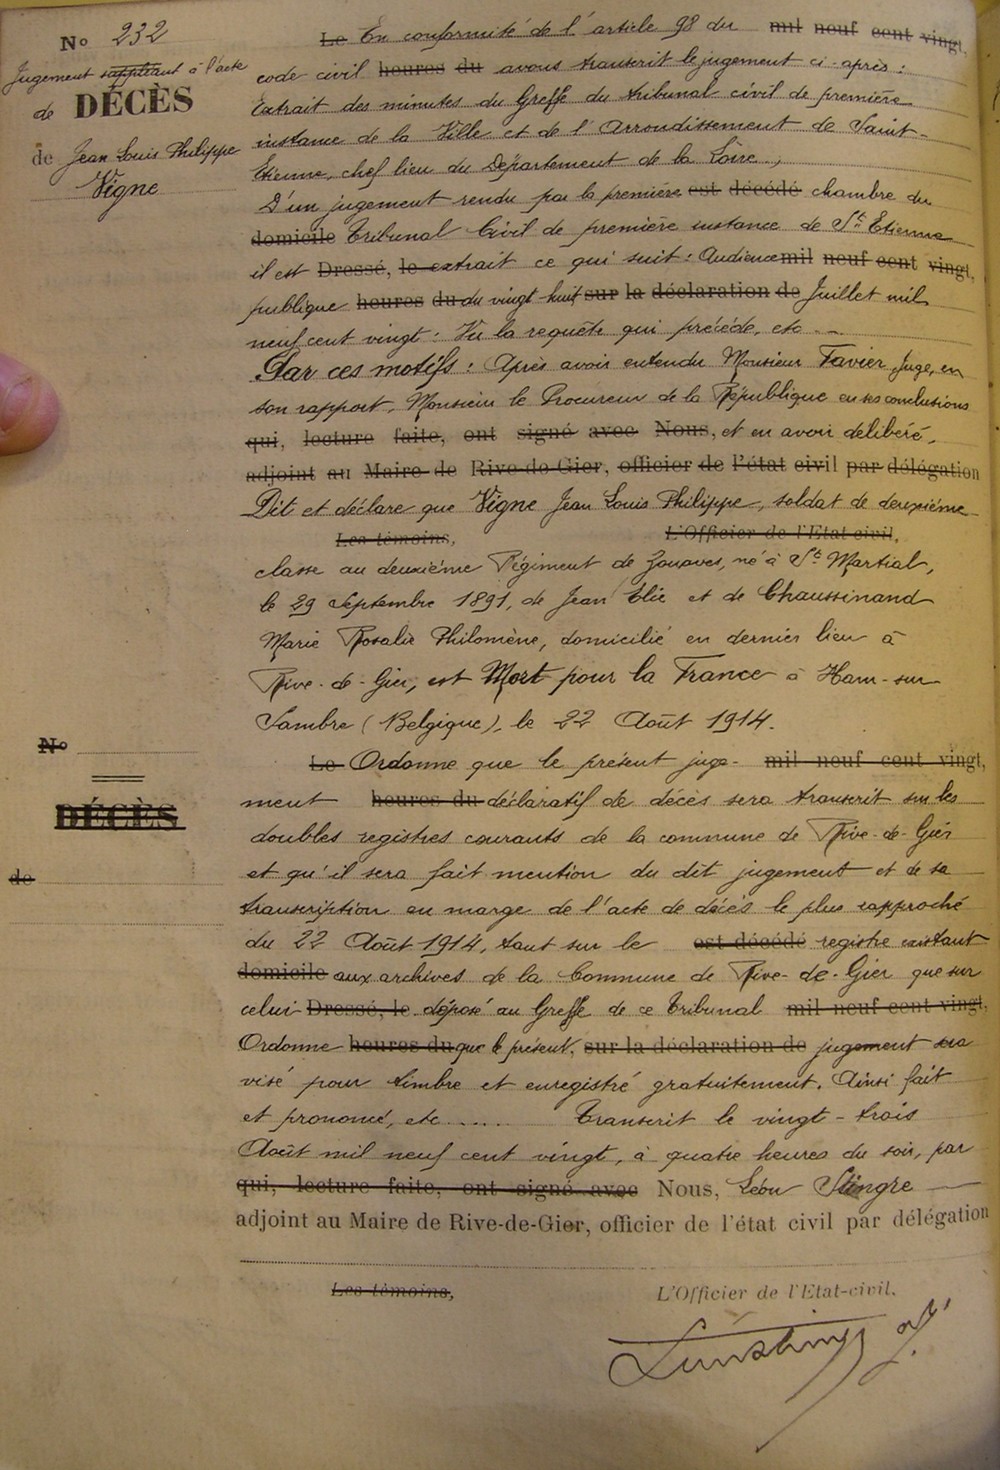 No 232
Jugement suppléant à l'acte
de DÉCÈS
de Jean Louis Philippe
Vigne
Le En conformité de l'article 98 du mil neuf cent vingt,
code civil heures du avons transcrit le jugement ci-après :
Extrait des minutes du Greffe du tribunal civil de première
instance de la Ville et de l'Arrondissement de Saint-
Etienne, chef lieu du Département de la Loire,
D'un jugement rendu par la première est décédé chambre du
domicile Tribunal Civil de première instance de St Etienne
il est Dressé, le extrait ce qui suit : Audience mil neuf cent vingt,
publique heures du du vingt-huit sur la déclaration de Juillet mil
neuf cent vingt : Vu la requête qui précède, etc
Par ces motifs : Après avoir entendu Monsieur Favier, Juge, en
son rapport, Monsieur le Procureur de la République en ses conclusions
qui, lecture faite, ont signé avec Nous, et en avoir délibéré,
adjoint au Maire de Rive-de-Gier, officier de l'état civil par délégation
Dit et déclare que Vigne Jean Louis Philippe, soldat de deuxième
Les témoins, L'Officier de l'Etat-civil,
classe au deuxième Régiment de Zouaves, né à St Martial,
le 29 Septembre 1891, de Jean Elie et de Chaussinand
Marie Rosalie Philomène, domicilié en dernier lieu à
Rive-de-Gier, est Mort pour la France à Ham-sur-
Sambre (Belgique), le 22 Août 1914.
Le Ordonne que le présent juge- mil neuf cent vingt,
ment heures du déclaratif de décès sera transcrit sur les
doubles registres courants de la commune de Rive-de-Gier
et qu'il sera fait mention du dit jugement et de sa
transcription en marge de l'acte de décès le plus rapproché
du 22 Août 1914, tant sur le est décédé registre existant
domicile aux archives de la Commune de Rive-de-Gier que sur
celui Dressé, le déposé au Greffe de ce Tribunal mil neuf cent vingt,
Ordonne heures du que le présent, sur la déclaration de jugement sera
visé pour timbre et enregistré gratuitement. Ainsi fait
et prononcé, etc...... Transcrit le vingt-trois
Août mil neuf cent vingt, à quatre heures du soir, par
qui, lecture faite, ont signé avec Nous, Léon
adjoint au Maire de Rive-de-Gier, officier de l'état civil par délégation
No
DÉCÈS
de
Les témoins, L'Officier de l'Etat-civil,